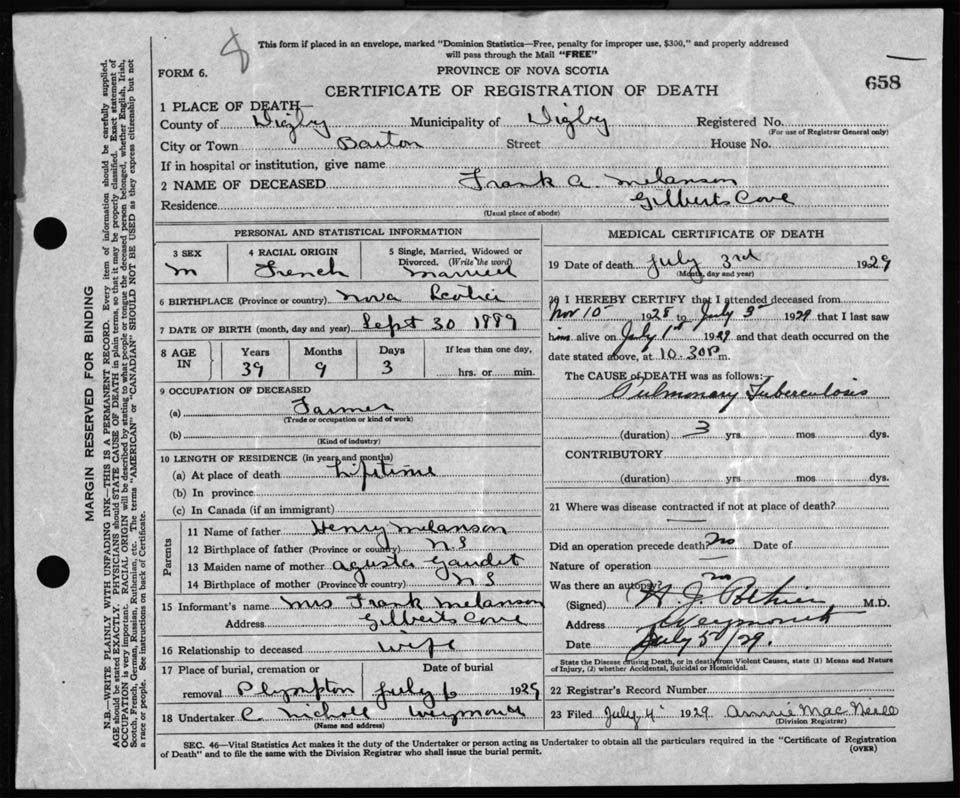 8
This form if placed in an envelope, marked "Dominion Statistics—Free, penalty for improper use, $300," and properly addressed
will pass through the Mail "FREE"
FORM 6.
PROVINCE OF NOVA SCOTIA
CERTIFICATE OF REGISTRATION OF DEATH
658
1 PLACE OF DEATH—
County of Digby Municipality of Digby Registered No.
(For use of Registrar General only)
City or Town Barton Street House No.
If in hospital or institution, give name
2 NAME OF DECEASED Frank A. Melanson
Residence Gilberts Cove
(Usual place of abode)
PERSONAL AND STATISTICAL INFORMATION
3 SEX 4 RACIAL ORIGIN 5 Single, Married, Widowed or
Divorced. (Write the word)
M French Married
6 BIRTHPLACE (Province or country) Nova Scotia
7 DATE OF BIRTH (month, day and year) Sept 30 1889
8 AGE IN Years Months Days If less than one day,
39 9 3 hrs. or min.
9 OCCUPATION OF DECEASED
(a) Farmer
(Trade or occupation or kind of work)
(b)
(Kind of industry)
10 LENGTH OF RESIDENCE (in years and months)
(a) At place of death Lifetime
(b) In province
(c) In Canada (if an immigrant)
Parents
11 Name of father Henry Melanson
12 Birthplace of father (Province or country) N S
13 Maiden name of mother Agusta Gaudet
14 Birthplace of mother (Province or country) N S
15 Informant's name Mrs Frank Melanson
Address Gilberts Cove
16 Relationship to deceased Wife
17 Place of burial, cremation or Date of burial
removal Plympton July 6 1929
18 Undertaker C Nicholl Weymouth
(Name and address)
MEDICAL CERTIFICATE OF DEATH
19 Date of death July 3rd 1929
(Month, day and year)
20 I HEREBY CERTIFY that I attended deceased from
Nov 10 1928 to July 3 1929 that I last saw
him alive on July 1st 1929 and that death occurred on the
date stated above, at 10.30 P m.
The CAUSE of DEATH was as follows:—
Pulmonary Tuberculosis
(duration) 3 yrs. mos dys.
CONTRIBUTORY
(duration) yrs. mos dys.
21 Where was disease contracted if not at place of death?
Did an operation precede death? No Date of
Nature of operation
Was there an autopsy? no
(Signed) H. J. M.D.
Address Weymouth
Date July 5/29.
State the Disease causing Death, or in death from Violent Causes, state (1) Means and Nature
of Injury, (2) whether Accidental, Suicidal or Homicidal.
22 Registrar's Record Number
23 Filed July 4 1929 Annie Mac Neill
(Division Registrar)
SEC. 46—Vital Statistics Act makes it the duty of the Undertaker or person acting as Undertaker to obtain all the particulars required in the "Certificate of Registration
of Death" and to file the same with the Division Registrar who shall issue the burial permit.
(OVER)
MARGIN RESERVED FOR BINDING
N.B.—WRITE PLAINLY WITH UNFADING INK—THIS IS A PERMANENT RECORD. Every item of information should be carefully supplied.
AGE should be stated EXACTLY. PHYSICIANS should STATE CAUSE OF DEATH in plain terms, so that it may be properly classified. Exact statement of
OCCUPATION is very important. RACIAL ORIGIN will be described by stating to what people or tongue the deceased person belonged, whether English, Irish,
Scotch, French, German, Russian, Ruthenian, etc. The terms "AMERICAN" or "CANADIAN" SHOULD NOT BE USED as they express citizenship but not
a race or people. See instructions on back of Certificate.